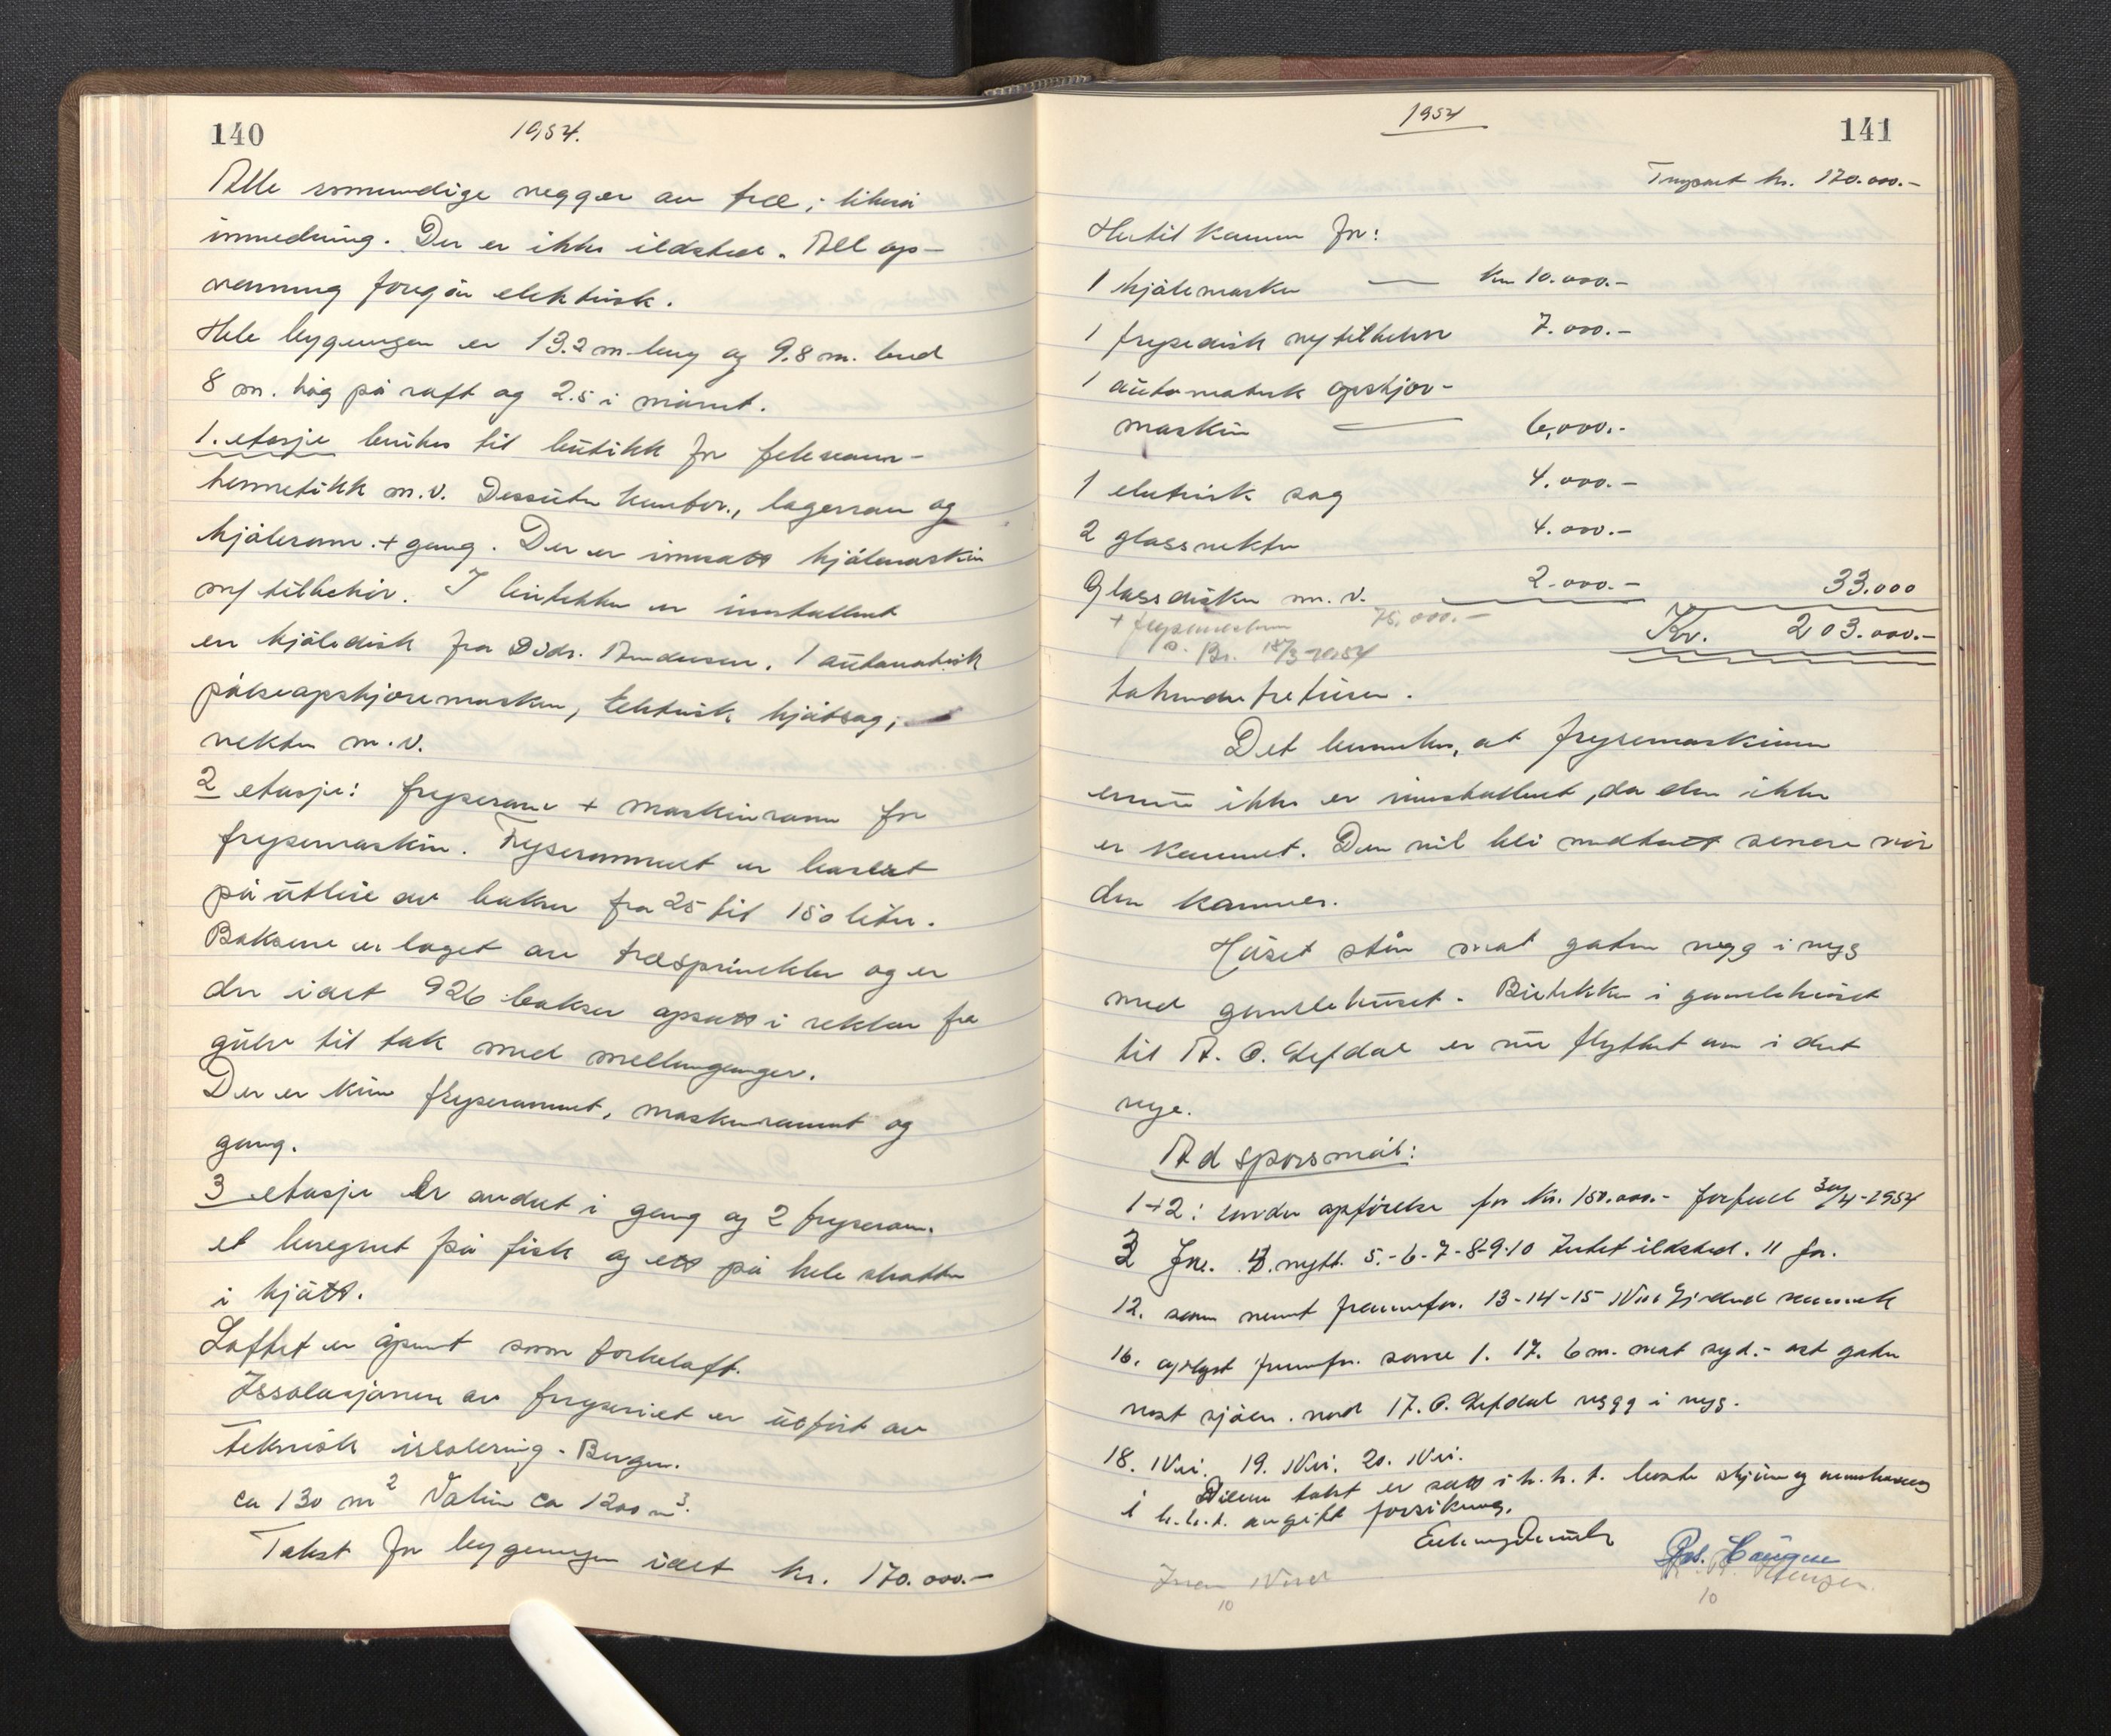 140
1954.
Alle romundige vegger av træ i likeså
innredning. Der er ikke ildsted. All op-
varming foregår elektrisk.
Hele bygningen er 13.2 m. lang og 9.8 m. bred
8 m. høg på raft og 2.5 i mønet.
1. etasje brukes til butikk for felevarer-
hermetikk m.v. Dessuten kontor., lagerrom og
kjølerom. + gang. Der er innsatt kjølemaskin
m/ tilbehør. I butikken er installert
en kjøledisk fra Andersen. 1 automatisk
pølseopskjæremaskin, elektrisk kjøtsag,
vekter m.v.
2 etasje: fryserom + maskinrom for
frysemaskin. Fryserommet er basert
på utleie av bokser fra 25 til 150 liter.
Boksene er laget av træsprinkler og er
der i alt 926 bokser opsatt i rekker fra
gulv til tak med mellemganger.
Der er kun fryserommet, maskinrommet og
gang.
3 etasje er avdelt i gang og 2 fryserom.
et beregnet på fisk og ett på hele slakter
i kjøtt.
Loftet er åpent som tørkeloft.
Issolasjonen av fryseriet er utført av
Teknisk issolering - Bergen.
ca 130 m² Volum ca 1200 m³.
Takst for bygningen i alt kr. 170.000.-
1954
141
Transport kr. 170.000.-
Hertil kommer for:
1 kjølemaskin — kr 10.000.-
1 frysedisk m/ tilbehør 7.000.-
1 automatisk opskjær-
maskin — 6,000.-
1 elektrisk sag 4.000.-
2 glassvekter 4.000.-
Glassdisker m.v. 2.000.- 33.000
+ frysemaskin 75.000.-
Br. 18/3-1954
Kr. 203.000.-
tohundreogtretusen.
Det bemerkes, at frysemaskinen
ennu ikke er installert, da den ikke
er kommet. Den vil bli medtatt senere når
den kommer.
Huset står mot gaten vegg i vegg
med gamlehuset. Butikken i gamlehuset
til A. O. Defdal er nu flyttet inn i det
nye.
Ad spørsmål:
1+2: under opførelse for kr. 150.000.- forfall 30/4-1954
3 Jne. 4. nytt. 5.-6-7-8-9-10 Intet ildsted. 11 Ja.
12. som nevnt fremmfor. 13-14-15 Nei
16. oplyst fremmfor. sone 1. 17. 6 m. mot syd.- ost gaten
vest sjøen. nord 17. O. Defdal vegg i vegg.
18. Nei. 19. Nei. 20. Nei.
Denne takst er satt i h. h. t. beste skjønn og
i h.h.t. avgitt forsikring.